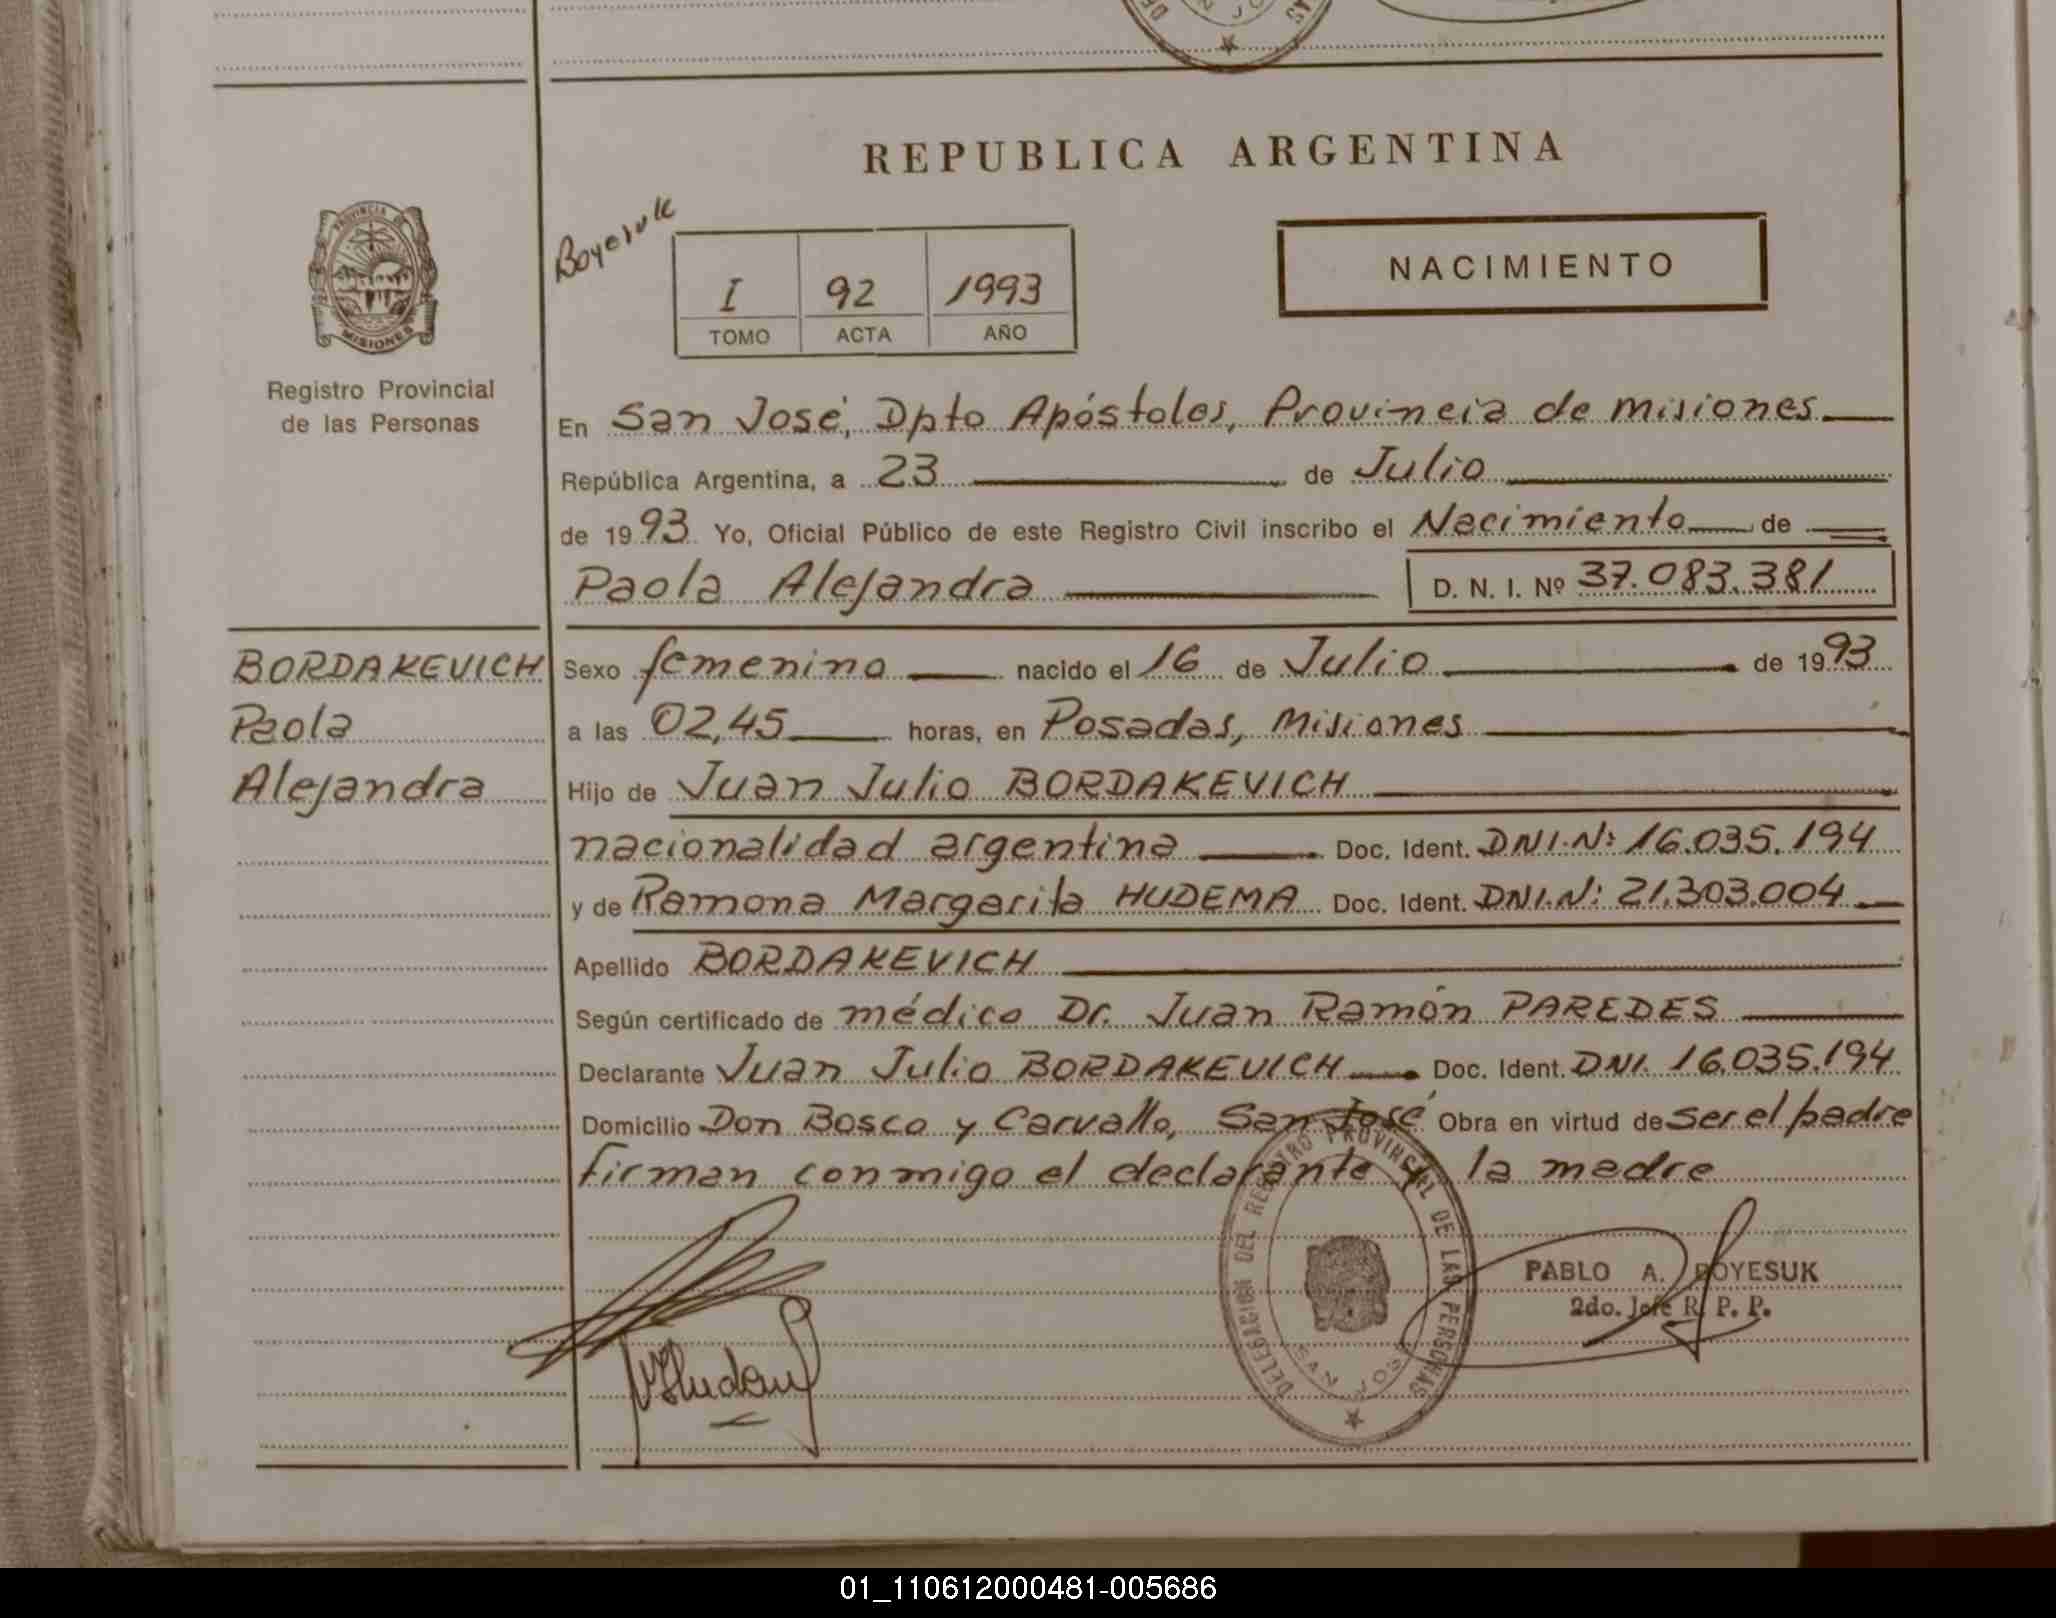 REPUBLICA ARGENTINA
PROVINCIA DE
MISIONES
Registro Provincial
de las Personas
Boyesuk
I 92 1993
TOMO ACTA AÑO
NACIMIENTO
En San José, Dpto Apóstoles, Provincia de Misiones
República Argentina, a 23 de Julio
de 1993 Yo, Oficial Público de este Registro Civil inscribo el Nacimiento de
Paola Alejandra D. N. I. Nº 37.083.381
BORDAKEVICH
Paola
Alejandra
Sexo femenino nacido el 16 de Julio de 1993
a las 02,45 horas, en Posadas, Misiones
Hijo de Juan Julio BORDAKEVICH
nacionalidad argentina Doc. Ident. DNI.N: 16.035.194
y de Ramona Margarita HUDEMA Doc. Ident. DNI.N: 21.303.004
Apellido BORDAKEVICH
Según certificado de médico Dr. Juan Ramón PAREDES
Declarante Juan Julio BORDAKEVICH Doc. Ident. DNI. 16.035.194
Domicilio Don Bosco y Carvallo, San José Obra en virtud de ser el padre
firman conmigo el declarante y la madre
DELEGACION DEL REGISTRO PROVINCIAL DE LAS PERSONAS
SAN JOSE
PABLO A. BOYESUK
2do. Jefe R. P. P.
01_110612000481-005686